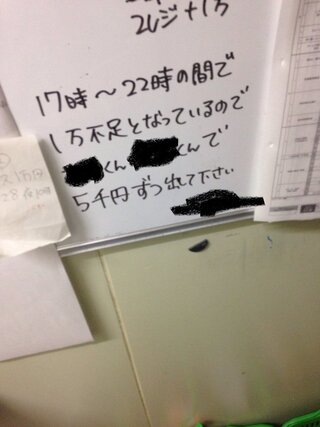 2レジ+1万
17時〜22時の間で
1万不足となっているので
くん くんで
5千円ずつ出して下さい